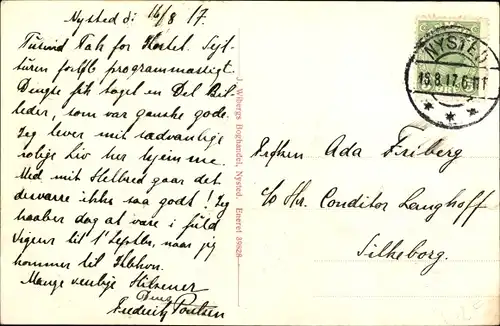 Nysted d. 16/8 17.
Tusind Tak for Kortet. Sejl-
turen forløb programmæssigt.
Dengse fik taget en Del Bil-
leder, som var ganske gode.
Jeg lever mit sædvanlige
rolige Liv her hjemme.
Med mit Helbred gaar det
desværre ikke saa godt! Jeg
haaber dog at være i fuld
Vigeur til 1' Septbr, naar jeg
kommer til Kbhvn.
Mange venlige Hilsener
Frederik Poulsen
J. Wibergs Boghandel, Nysted. Eneret 39828
NYSTED
16.8.17.6
Frøken Ada Friberg
c/o Hr. Conditor Langhoff
Silkeborg.